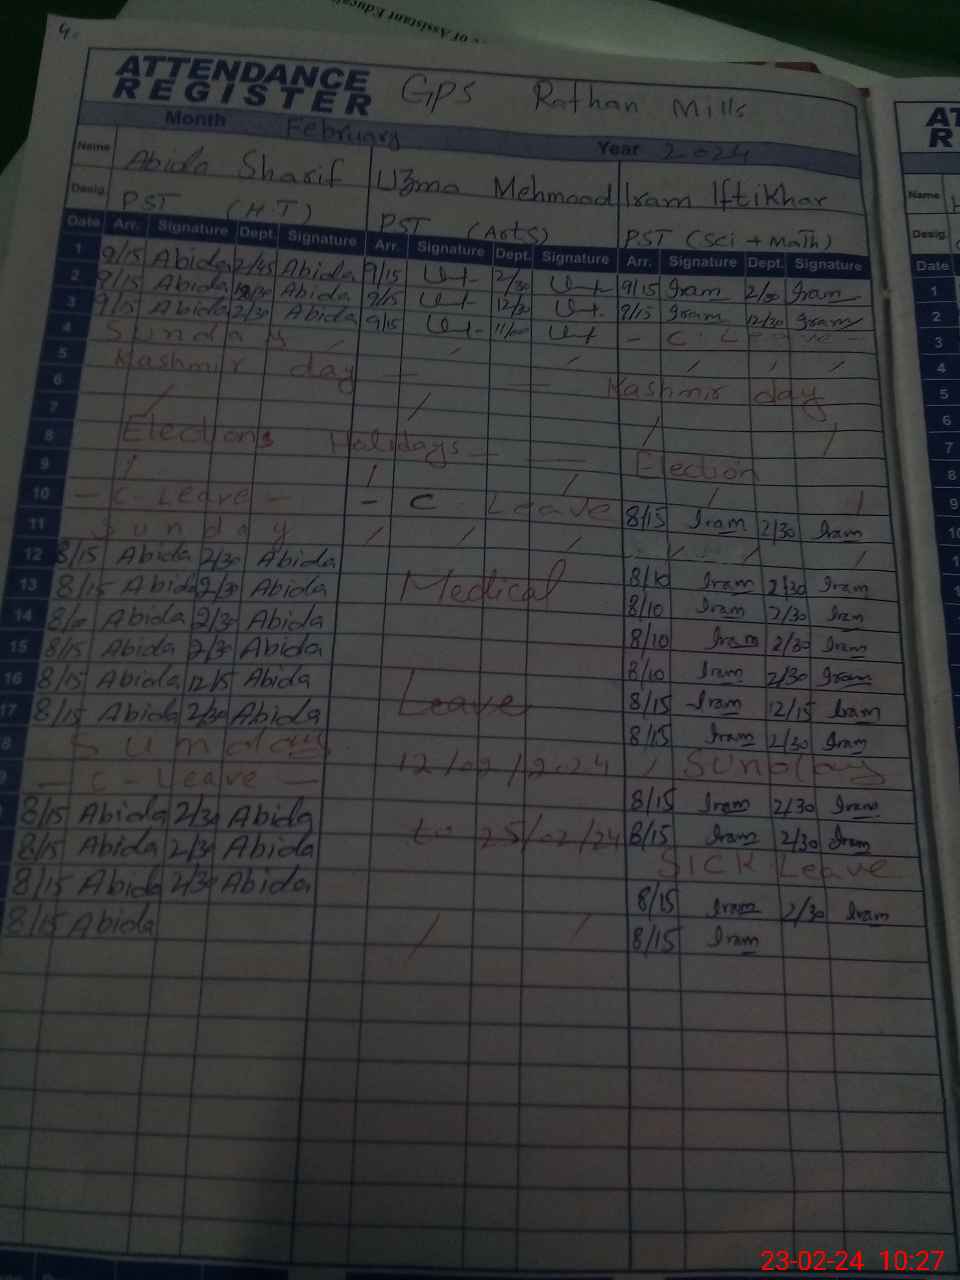 4.
of Assistant Educa
ATTENDANCE REGISTER GPS Rathan Mills
Month February Year 2024
Name Abida Sharif Uzma Mehmood Iram Iftikhar
Desig. PST (HT) PST (Arts) PST (Sci + Math)
Date Arr. Signature Dept. Signature Arr. Signature Dept. Signature Arr. Signature Dept. Signature
1 9/15 Abida 2/45 Abida 9/15 2/30 9/15 Iram 2/30 Iram
2 9/15 Abida 12/30 Abida 9/15 12/30 9/15 Iram 12/30 Iram
3 9/15 Abida 2/30 Abida 9/15 - C. Leave -
4 Sunday
5 Kashmir day Kashmir day
6
7
8 Elections Holidays Election
9
10 - C - Leave - - C Leave 8/15 Iram 2/30 Iram
11 Sunday
12 8/15 Abida 2/30 Abida 8/10 Iram 2/30 Iram
13 8/15 Abida 2/30 Abida Medical 8/10 Iram 2/30 Iram
14 Abida 2/30 Abida 8/10 Iram 2/30 Iram
15 8/15 Abida 2/30 Abida 8/10 Iram 2/30 Iram
16 8/15 Abida 12/15 Abida Leave 8/15 Iram 12/15 Iram
17 8/15 Abida 2/30 Abida 8/15 Iram 2/30 Iram
8 Sunday 12/02/2024 Sunday
9 - C - Leave - 8/15 Iram 2/30 Iram
8/15 Abida 2/30 Abida to 25/02/24 8/15 Iram 2/30 Iram
8/15 Abida 2/30 Abida SICK Leave
8/15 Abida 2/30 Abida 8/15 Iram 2/30 Iram
8/15 Abida 8/15 Iram
AT
R
Name
Desig.
Date
1
2
3
4
5
6
7
8
9
10
1
23-02-24 10:27